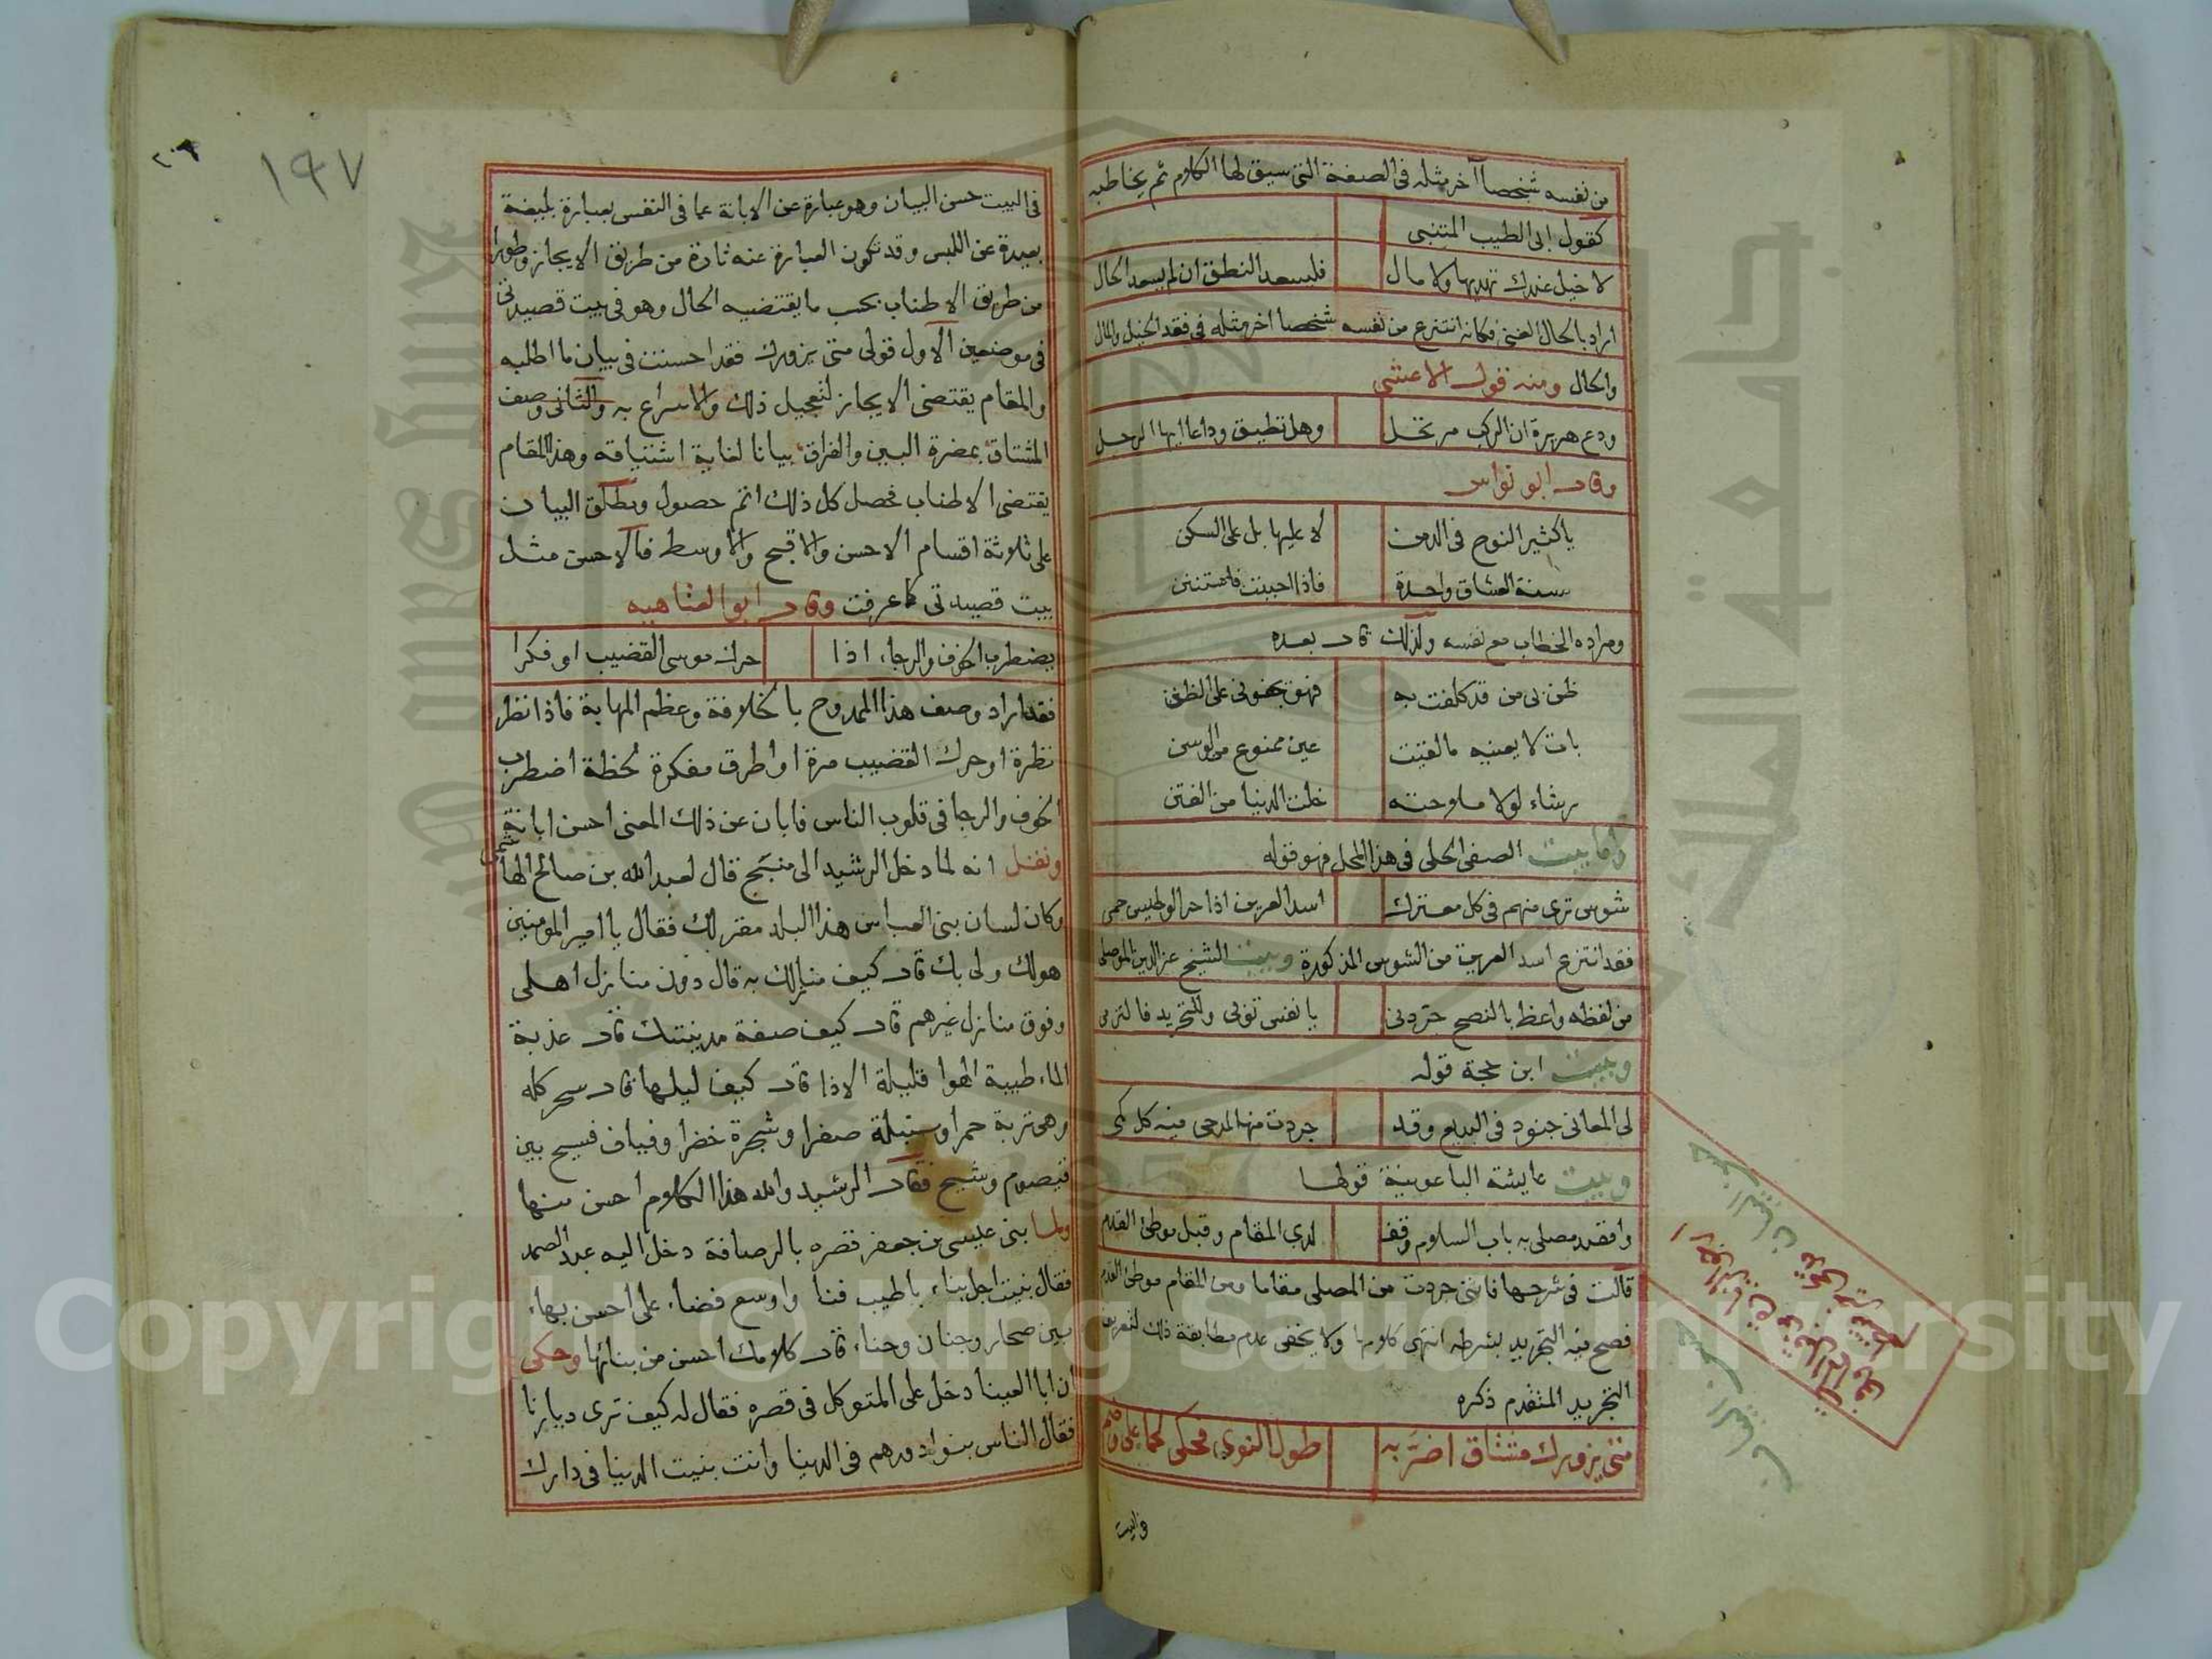 من نفسه شخصا آخر مثله في الصفة التي سيق لها الكلام ثم يخاطبه
كقول ابي الطيب المتنبي
لا خيل عندك تهديها ولا مال فليسعد النطق ان لم يسعد الحال
اراد بالحال الغنى فكانه انتزع من نفسه شخصا اخر مثله في فقد الخيل والمال
والحال ومنه قول الاعشى
ودع هريرة ان الركب مرتحل وهل تطيق وداعا ايها الرجل
وقال ابو نواس
يا كثير النوح في الدمن لا عليها بل على السكن
سنة العشاق واحدة فاذا احببت فاستنن
ومراده الخطاب مع نفسه ولذلك قال بعده
ظن بي من قد كلفت به فهو يجفوني على الظنن
بات لا يعنيه ما لقيت عين ممنوع من الوسن
رشاء لولا ملاحته خلت الدنيا من الفتن
واما بيت الصفي الحلي في هذا المحل فهو قوله
شوس ترى منهم في كل معترك اسد العرين اذا حر الوطيس حمى
فقد انتزع اسد العرين من الشوس المذكورة وبيت الشيخ عز الدين الموصلي
من لفظه واعظ بالنصح جردني يا نفس توبي وللتجريد فالتزمي
وبيت ابن حجة قوله
لي المعاني جنود في البديع وقد جردت منها لمدحي فيه كل كمي
وبيت عايشة الباعونية قولها
واقصد مصلى به باب السلام وقف لدى المقام وقبل موطئ القدم
قالت في شرحها فانني جردت من المصلى مقاما ومن المقام موطئ القدم
فصح فيه التجريد بشرطه انتهى كلامها ولا يخفى عدم مطابقة ذلك لتعريف
التجريد المتقدم ذكره
متى يزورك مشتاق اضر به طول النوى
والبيت
حسن البيان
حسن البيان
١٩٧
٢٠٩
في البيت حسن البيان وهو عبارة عن الابانة عما في النفس بعبارة بليغة
بعيدة عن اللبس وقد تكون العبارة عنه تارة من طريق الايجاز وطورا
من طريق الاطناب بحسب ما يقتضيه الحال وهو في بيت قصيدتي
في موضعين الاول قولي متى يزورك فقد احسنت في بيان ما اطلبه
والمقام يقتضي الايجاز لتعجيل ذلك والاسراع به والثاني وصف
المشتاق بمضرة البين والفراق بيانا لغاية اشتياقه وهذا المقام
يقتضي الاطناب فحصل كل ذلك اتم حصول ويطلق البيان
على ثلاثة اقسام الاحسن والاقبح والاوسط فالاحسن مثل
بيت قصيدتي كما عرفت وقال ابو العتاهيه
يضطرب الخوف والرجاء اذا حرك موسى القضيب او فكرا
فقد اراد وصف هذا الممدوح بالخلافة وعظم المهابة فاذا نظر
نظرة او حرك القضيب مرة او اطرق مفكرة لحظة اضطرب
الخوف والرجا في قلوب الناس فابان عن ذلك المعنى احسن ابانة
ونقل انه لما دخل الرشيد الى منبج قال لعبد الله بن صالح الهاشمي
وكان لسان بني العباس هذا البلد مقر لك فقال يا امير المومنين
هو لك ولي بك قال كيف منازلك به قال دون منازل اهلي
وفوق منازل غيرهم قال كيف صفة مدينتك قال عذبة
الماء طيبة الهوا قليلة الاذا قال كيف ليلها قال سحر كله
وهي تربة حمرا وسنبلة صفرا وشجرة خضرا وفياف فسيح بين
قيصوم وشيح فقال الرشيد والله هذا الكلام احسن منها
ولما بنى عيسى بن جعفر قصره بالرصافة دخل اليه عبد الصمد
فقال بنيت اجل بناء باطيب فنا واوسع فضاء على احسن بهاء
بين صحار وجنان وحناء قال كلامك احسن من بنائها وحكى
ان ابا العينا دخل على المتوكل في قصره فقال له كيف ترى ديارنا
فقال الناس بنوا دورهم في الدنيا وانت بنيت الدنيا في دارك
Copyright © King Saud University
King Saud University
جامعة الملك
1957